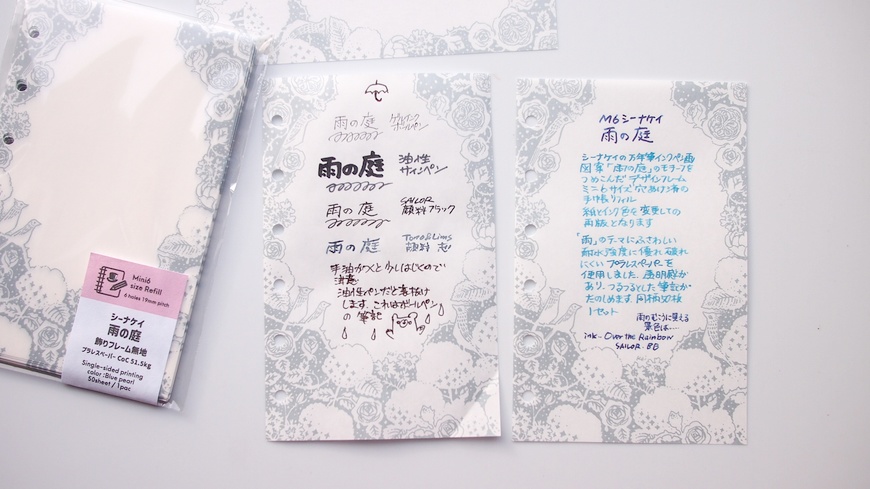 Mini6
size Refill
6 holes 19mm pitch
シーナケイ
雨の庭
飾りフレーム無地
プラレスペーパー CoC 51.5kg
Single-sided printing
color:Blue pearl
50sheet / 1pac
雨の庭 ゲルインク
ボールペン
雨の庭 油性
サインペン
雨の庭 SAILOR
顔料ブラック
雨の庭 Tono&Lims
顔料
手油がつくと少しはじくので
注意
油性ペンだと裏抜け
します、これはボールペン
の筆記
M6 シーナケイ
雨の庭
シーナケイの万年筆インクペン画
図案「雨の庭」のモチーフを
つめこんだデザインフレーム
ミニ6サイズ穴あけ済の
手帳リフィル
紙とインク色を変更しての
再販となります
「雨」のテーマにふさわしい
耐水強度に優れ破れ
にくいプラレスペーパーを
使用しました、透明感が
あり、つるつるとした筆記が
たのしめます 同柄50枚
1セット
雨のむこうに見える
景色は……
ink- Over the Rainbow
SAILOR. BB